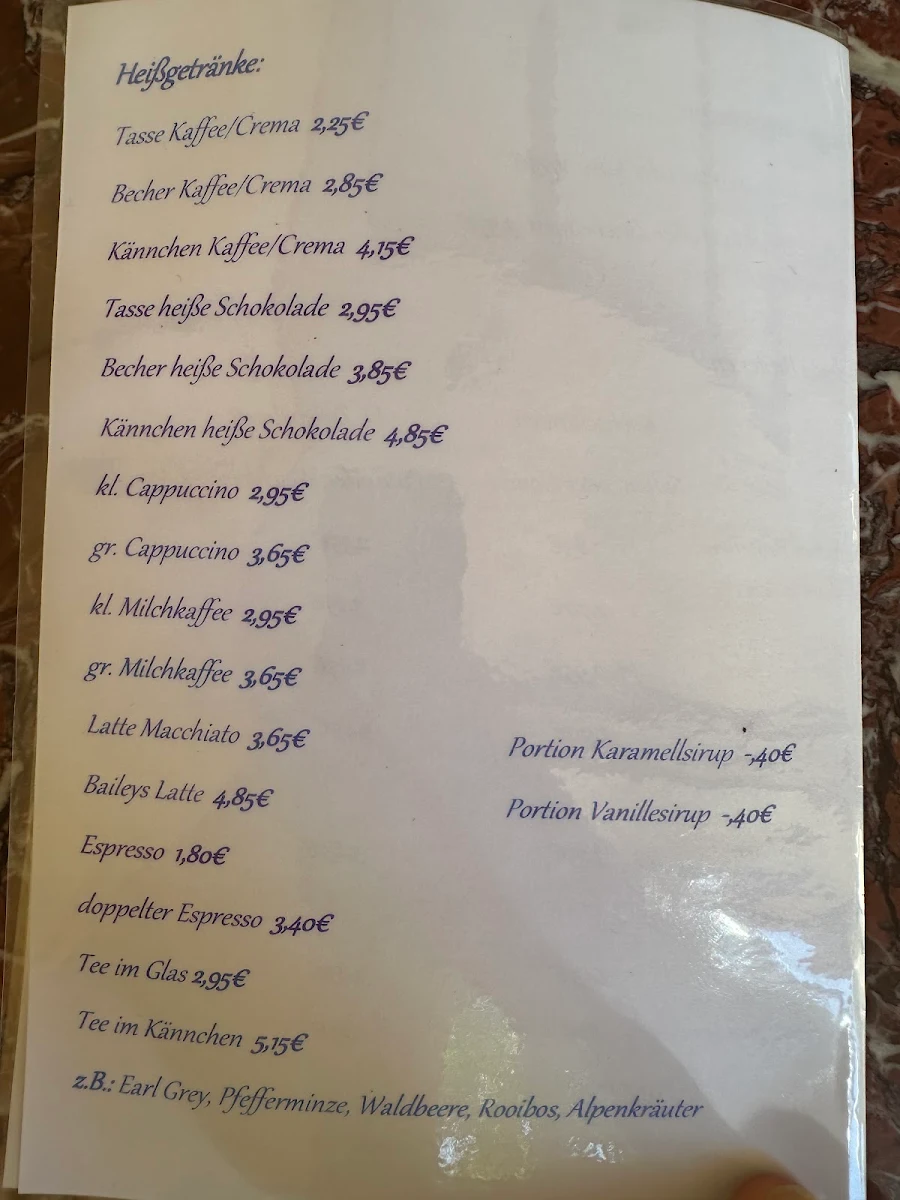 Heißgetränke:
Tasse Kaffee/Crema 2,25€
Becher Kaffee/Crema 2,85€
Kännchen Kaffee/Crema 4,15€
Tasse heiße Schokolade 2,95€
Becher heiße Schokolade 3,85€
Kännchen heiße Schokolade 4,85€
kl. Cappuccino 2,95€
gr. Cappuccino 3,65€
kl. Milchkaffee 2,95€
gr. Milchkaffee 3,65€
Latte Macchiato 3,65€
Portion Karamellsirup -,40€
Baileys Latte 4,85€
Portion Vanillesirup -,40€
Espresso 1,80€
doppelter Espresso 3,40€
Tee im Glas 2,95€
Tee im Kännchen 5,15€
z.B.: Earl Grey, Pfefferminze, Waldbeere, Rooibos, Alpenkräuter